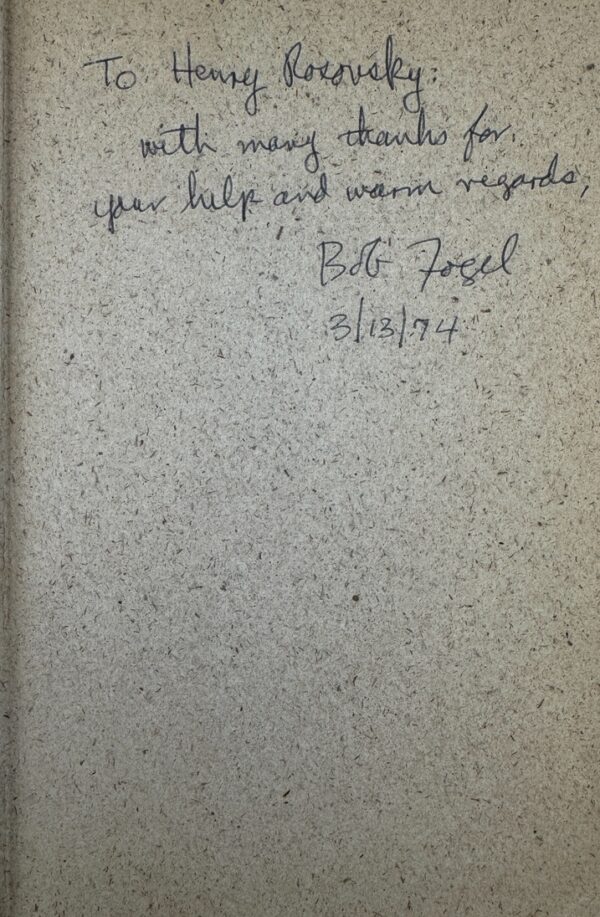 To Henry Rosovsky:
with many thanks for
your help and warm regards,
Bob Fogel
3/13/74